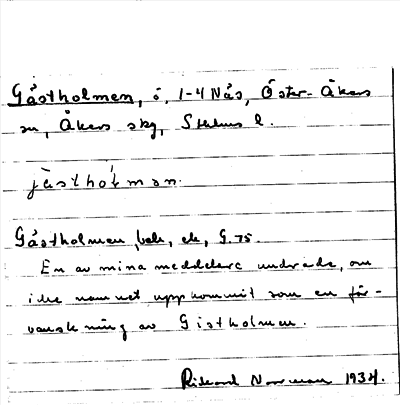 Gåstholmen, ö, 1-4 Nås, Öster-Åkers
sn, Åkers skg, Sthlms l.
jästhólmən.
Gåstholmen, beb, ek, G. 75.
En av mina meddelare undrade, om
icke namnet uppkommit som en för-
vanskning av Gistholmen.
Rickard Norrman 1934.